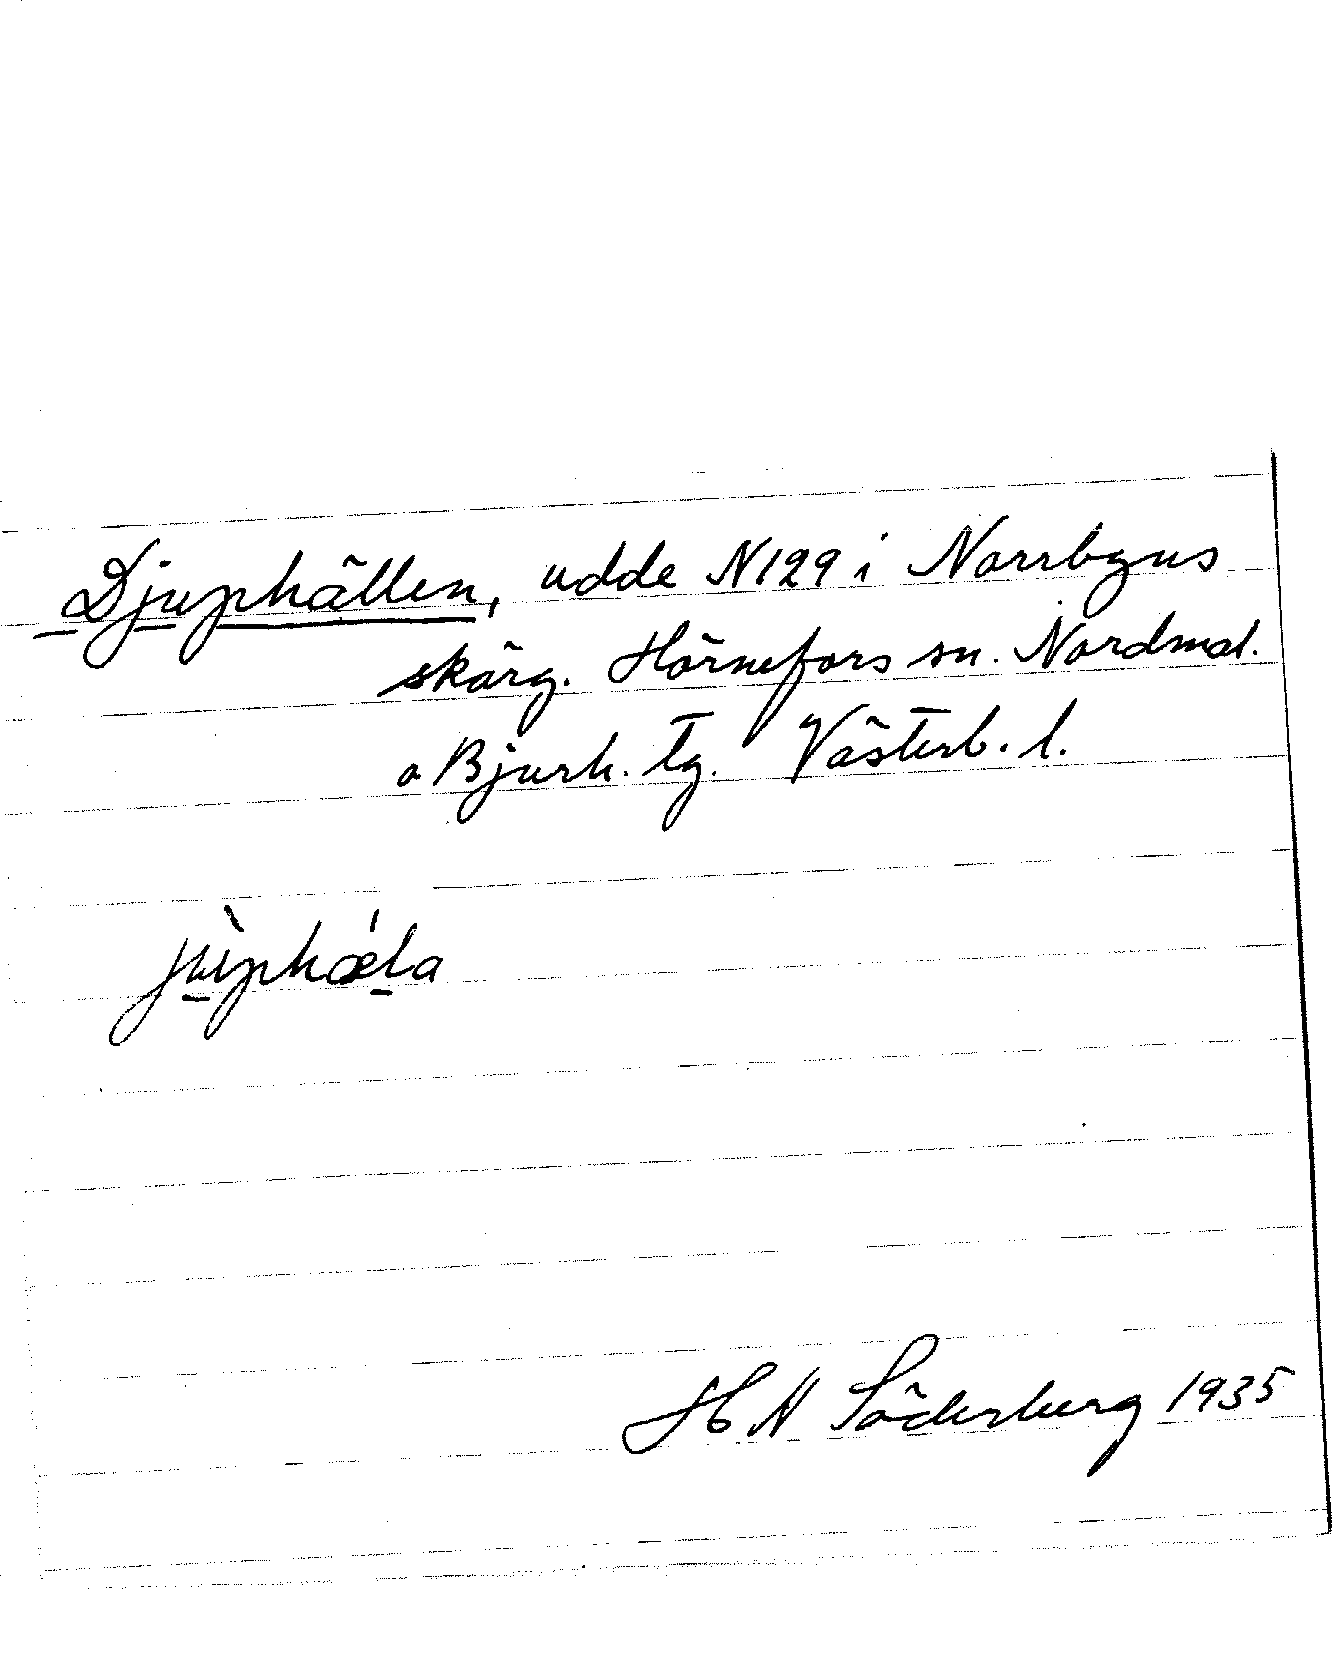 Djuphällen, udde N129 i Norrbyns
skärg. Hörnefors sn. Nordmal.
o Bjurh. tg. Västerb. l.
jùphǽla
H N Söderberg 1935